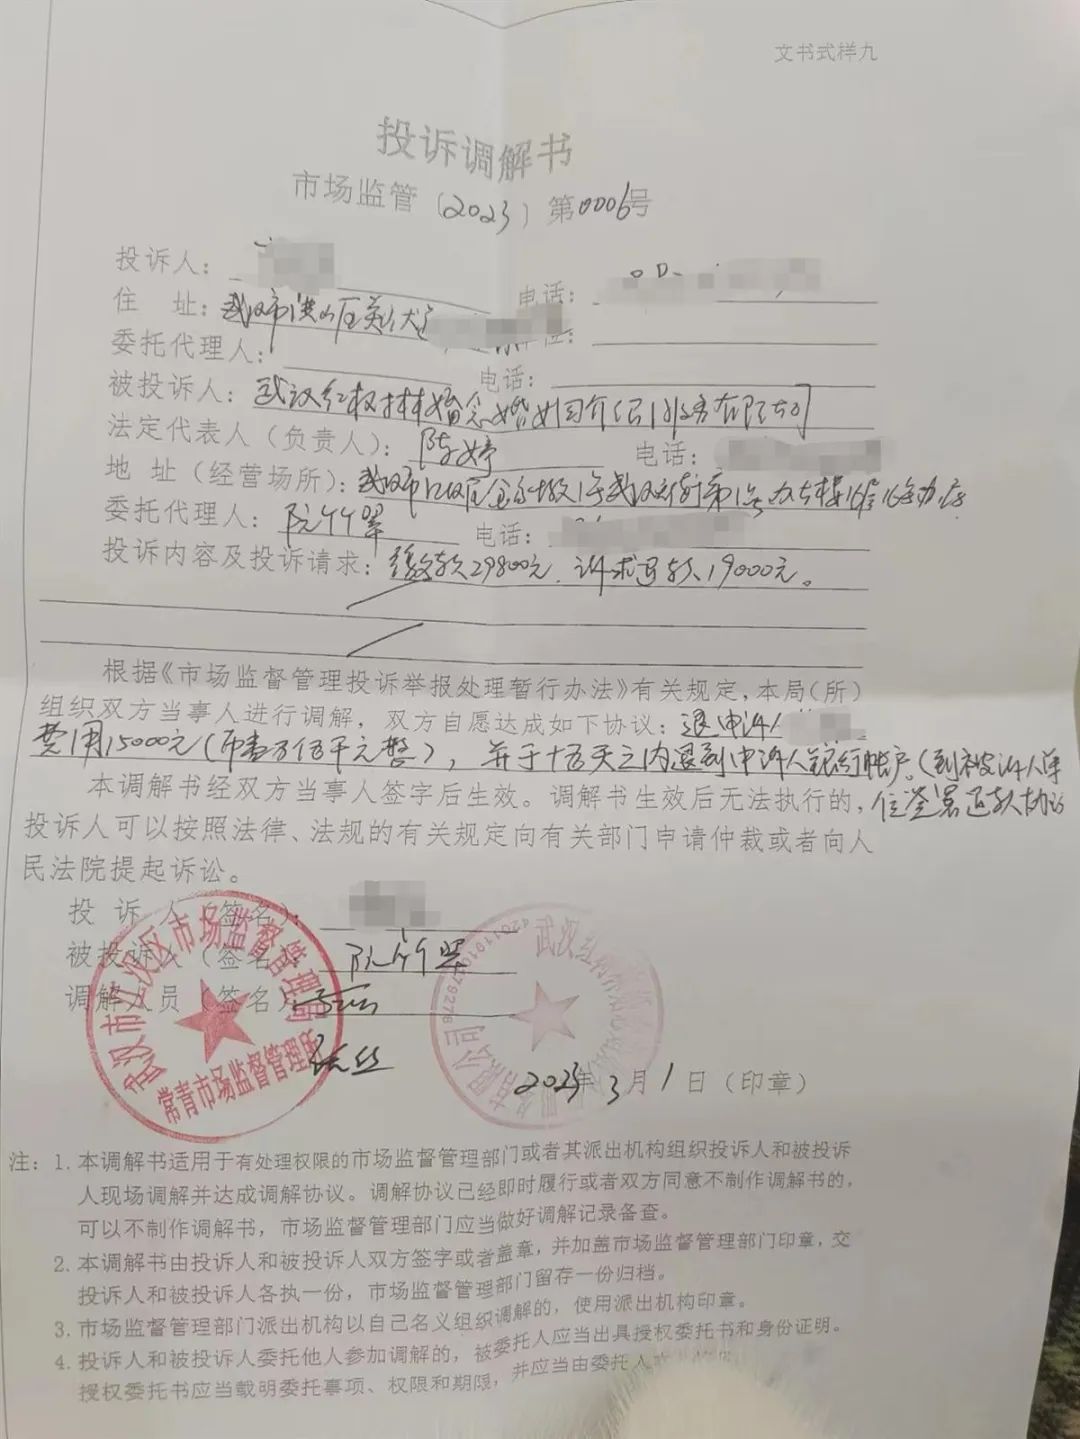 文书式样九
投诉调解书
市场监管（2023）第0006号
投诉人：
电话：
住 址：武汉市洪山区
委托代理人：
电话：
被投诉人：武汉红 婚姻介绍服务有限公司
法定代表人（负责人）：陈婷
电话：
地 址（经营场所）：武汉市江汉区
委托代理人：阮竹翠
电话：
投诉内容及投诉请求：缴款29800元，诉求退款19000元。
根据《市场监督管理投诉举报处理暂行办法》有关规定，本局（所）
组织双方当事人进行调解，双方自愿达成如下协议：退申诉人
费用15000元（币壹万伍仟元整），并于十五天之内退到申诉人 账户。（到被诉人单
位签署退款协议
本调解书经双方当事人签字后生效。调解书生效后无法执行的，
投诉人可以按照法律、法规的有关规定向有关部门申请仲裁或者向人
民法院提起诉讼。
投 诉 人（签名）：
被投诉人（签名）：阮竹翠
调解人员（签名）
武汉市江汉区市场监督管理局
常青市场监督管理所
武汉红
有限公司
2023年3月1日（印章）
注：1. 本调解书适用于有处理权限的市场监督管理部门或者其派出机构组织投诉人和被投诉
人现场调解并达成调解协议。调解协议已经即时履行或者双方同意不制作调解书的，
可以不制作调解书，市场监督管理部门应当做好调解记录备查。
2. 本调解书由投诉人和被投诉人双方签字或者盖章，并加盖市场监督管理部门印章，交
投诉人和被投诉人各执一份，市场监督管理部门留存一份归档。
3. 市场监督管理部门派出机构以自己名义组织调解的，使用派出机构印章。
4. 投诉人和被投诉人委托他人参加调解的，被委托人应当出具授权委托书和身份证明。
授权委托书应当载明委托事项、权限和期限，并应当由委托人